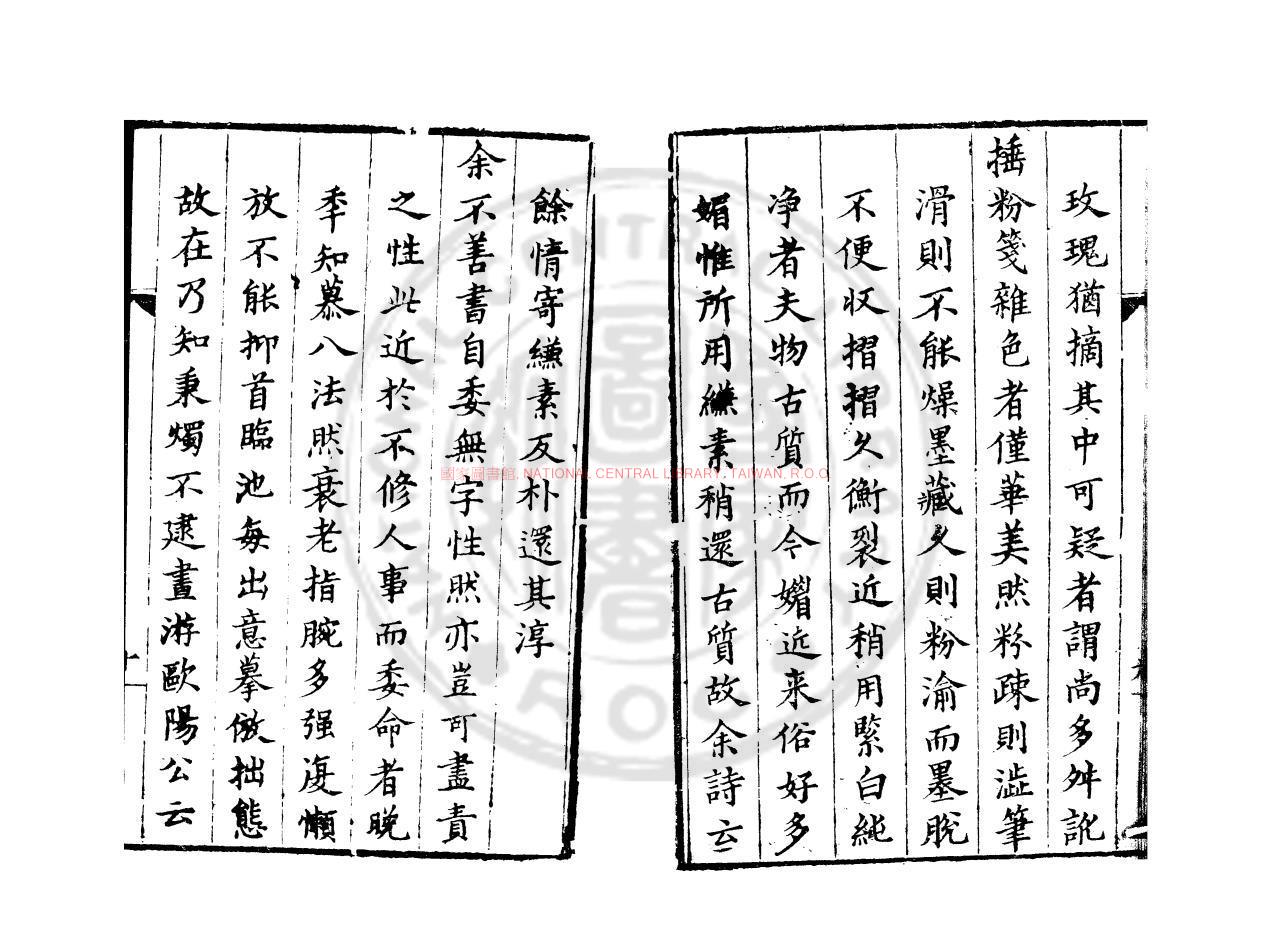 玫瑰猶摘其中可疑者謂尚多舛訛
捶粉箋雜色者僅華美然粉疎則澁筆
滑則不能燥墨藏久則粉渝而墨脫
不便収摺摺久衡裂近稍用緊白純
净者夫物古質而今媚近来俗好多
媚惟所用縑素稍還古質故余詩云
餘情寄縑素反朴還其淳
余不善書自委無字性然亦豈可盡責
之性此近於不修人事而委命者晚
季知慕八法然衰老指腕多强復懶
放不能抑首臨池每出意摹倣拙態
故在乃知秉燭不逮晝游歐陽公云
國家圖書館, NATIONAL CENTRAL LIBRARY, TAIWAN, R.O.C.